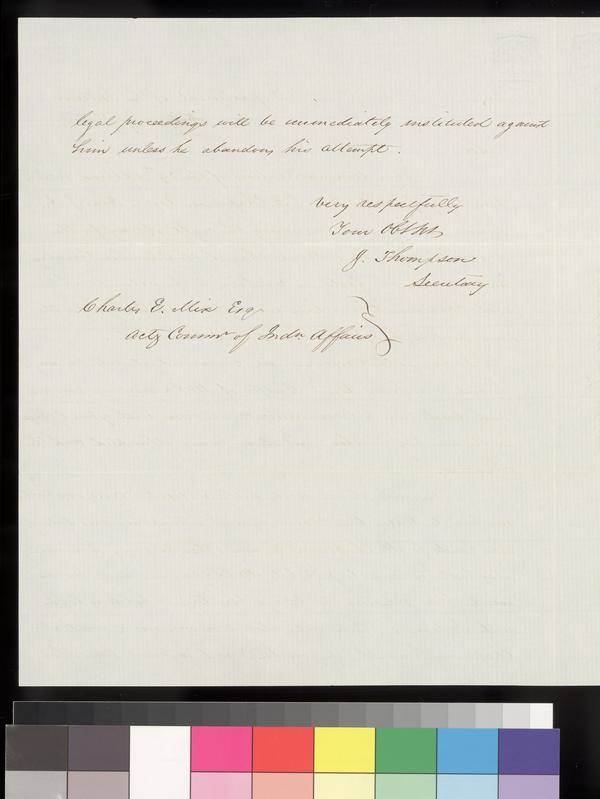 legal proceedings will be immediately instituted against
him unless he abandons his attempt.
Very respectfully
Your Obt Svt
J. Thompson
Secretary
Charles E. Mix Esq
Actg Commr of Indn Affairs